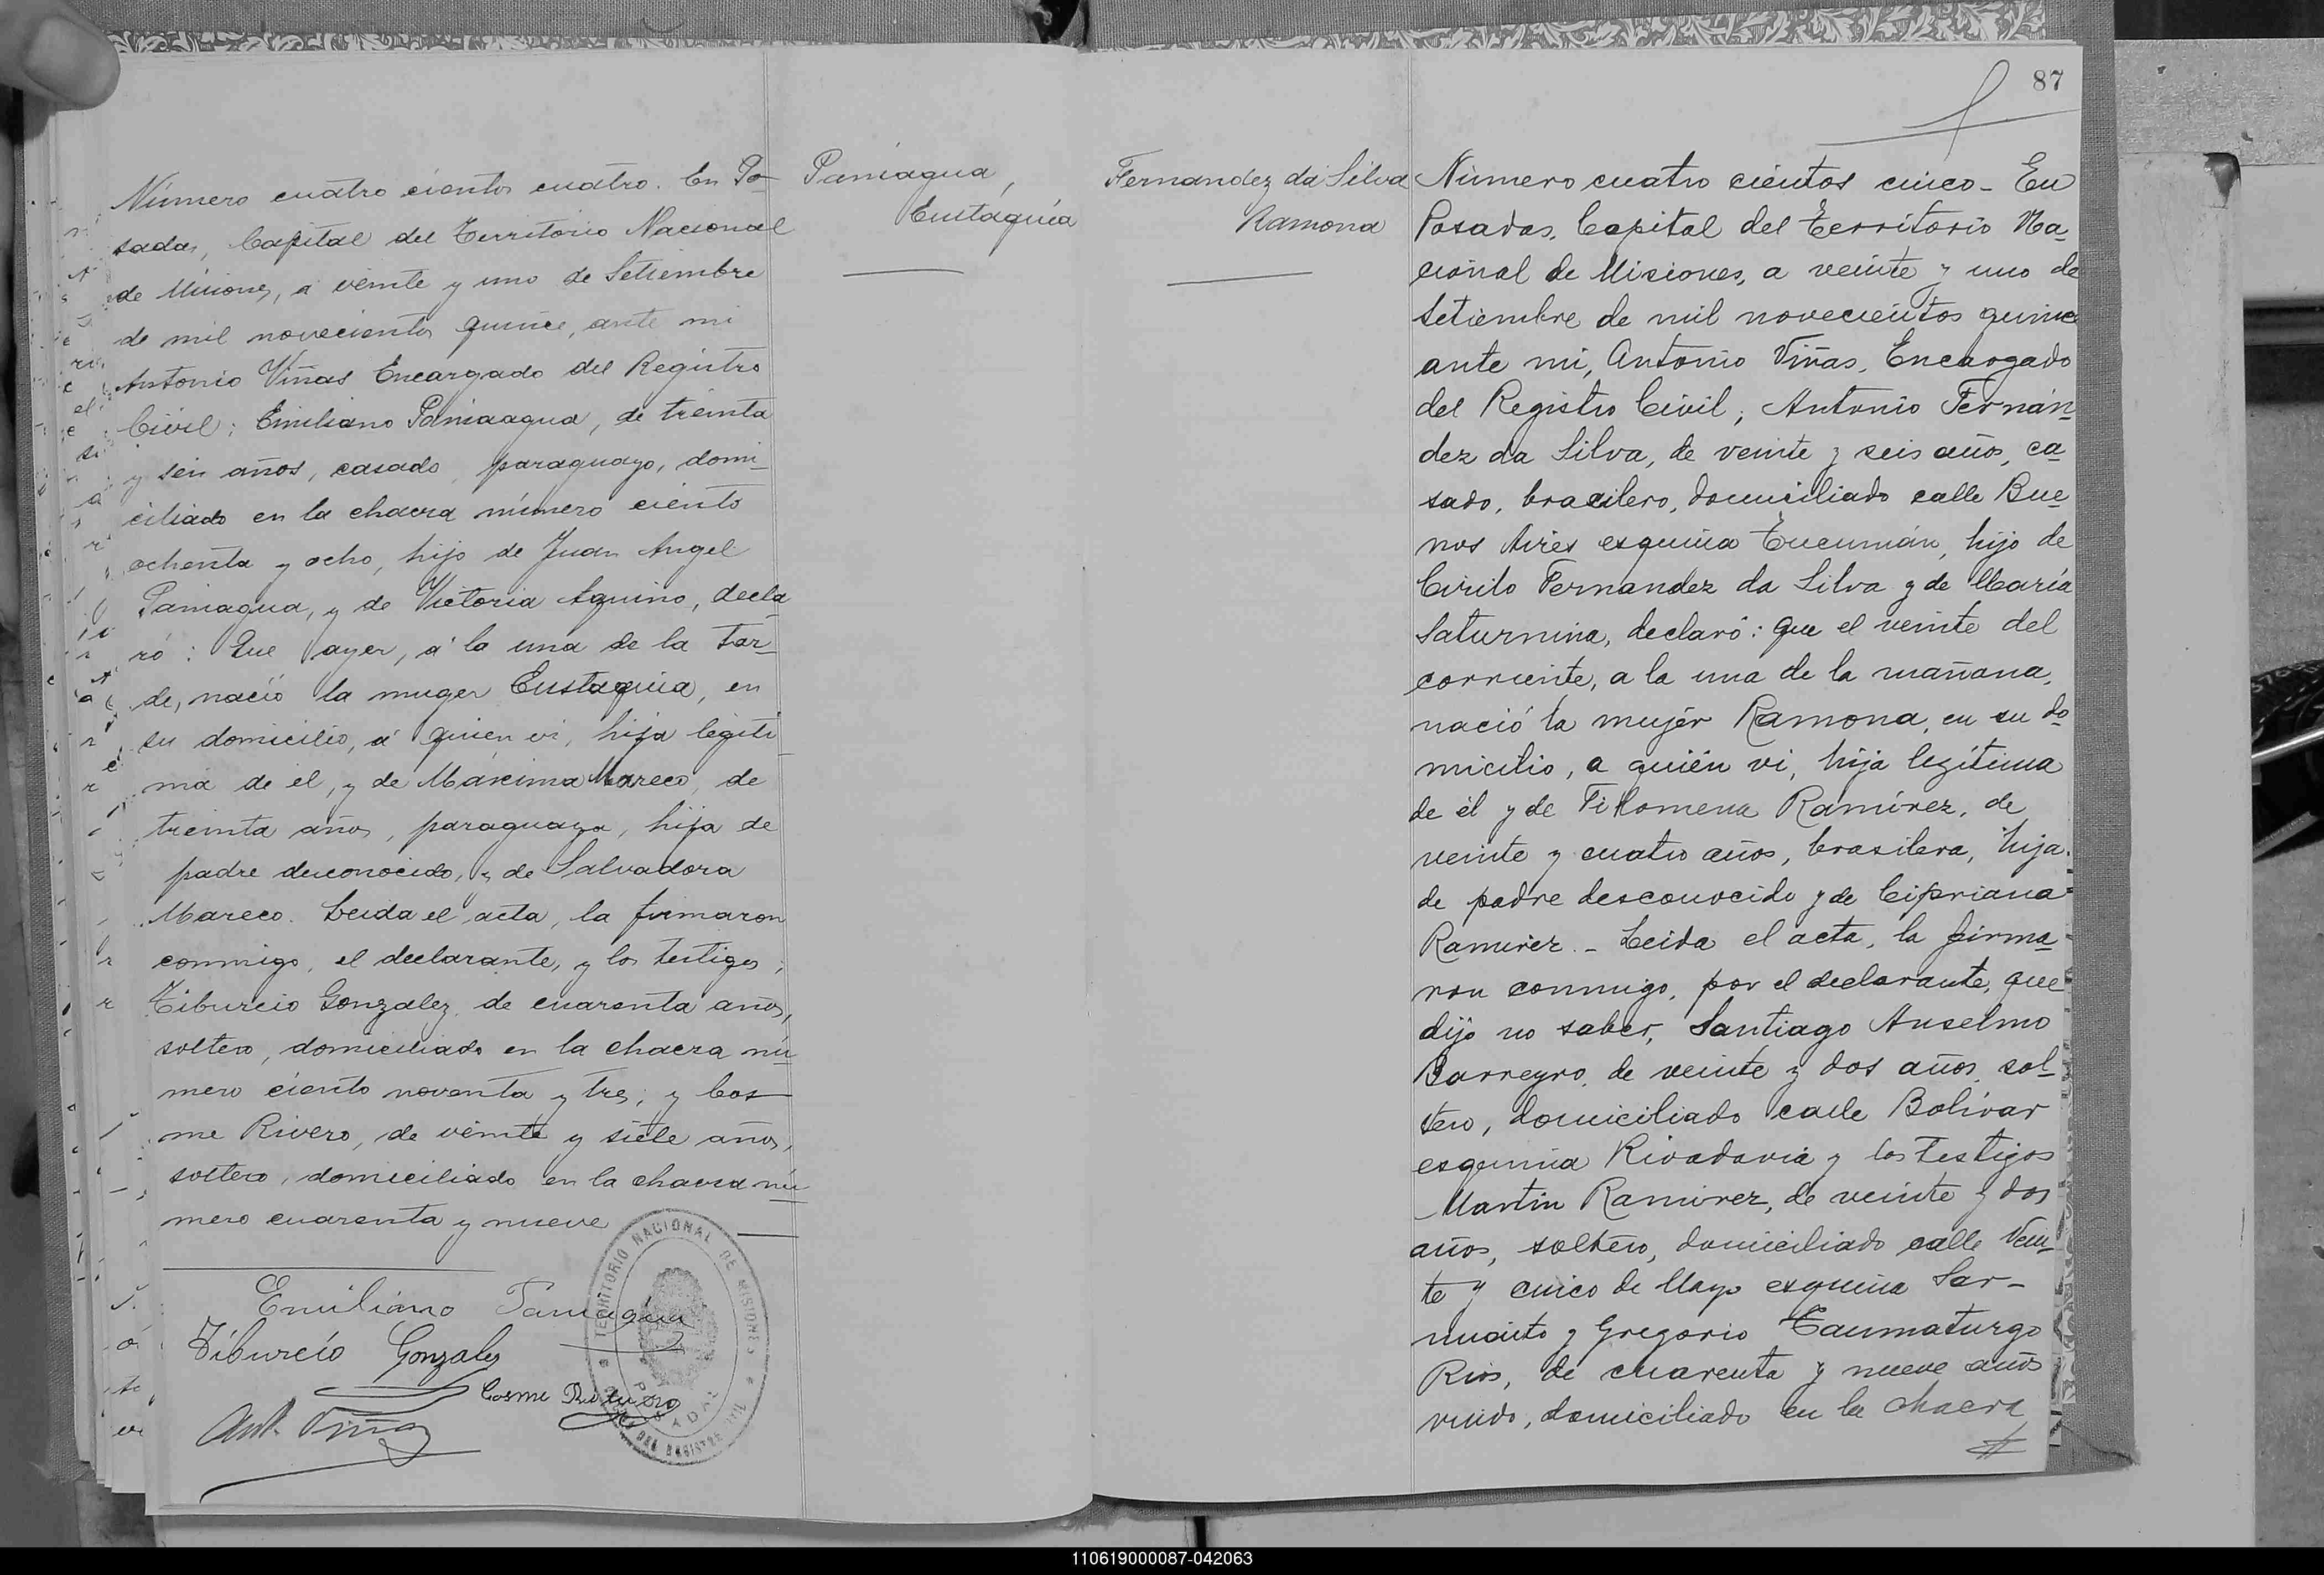 Número cuatro cientos cuatro. En Po-
sadas, Capital del Territorio Nacional
de Misiones, a veinte y uno de Setiembre
de mil novecientos quince, ante mi
Antonio Viñas Encargado del Registro
Civil; Emiliano Paniaagua, de treinta
y seis años, casado, paraguayo, domi-
ciliado en la chacra número ciento
ochenta y ocho, hijo de Juan Angel
Paniagua, y de Victoria Aquino, decla-
ró: Que ayer, á la una de la tar-
de, nació la muger Eustaquia, en
su domicilio, á quien vi, hija legíti-
ma de él, y de Máxima Mareco, de
treinta años, paraguaya, hija de
padre desconocido, y de Salvadora
Mareco. Leida el acta, la firmaron
conmigo, el declarante, y los testigos;
Tiburcio Gonzalez, de cuarenta años,
soltero, domiciliado en la chacra nú-
mero ciento noventa y tres; y Cos-
me Rivero, de veinte y siete años,
soltero, domiciliado en la chacra nú-
mero cuarenta y nueve
Emiliano Paniagua
Tiburcio Gonzalez
Cosme Rivero
Ant. Viñas
TERRITORIO NACIONAL DE MISIONES
POSADAS
DEL REGISTRO
Paniagua,
Eustaquia
Fernandez da Silva
Ramona
87
Número cuatro cientos cinco- En
Posadas, Capital del Territorio Na-
cional de Misiones, a veinte y uno de
Setiembre de mil novecientos quince
ante mi, Antonio Viñas, Encargado
del Registro Civil; Antonio Fernán-
dez da Silva, de veinte y seis años, ca-
sado, brasilero, domiciliado calle Bue-
nos Aires esquina Tucumán, hijo de
Cirilo Fernandez da Silva y de María
Saturnina, declaró: que el veinte del
corriente, a la una de la mañana,
nació la mujer Ramona, en su do-
micilio, a quién vi, hija legítima
de él y de Filomena Ramírez, de
veinte y cuatro años, brasilera, hija
de padre desconocido y de Cipriana
Ramirez.- Leida el acta, la firma-
ron conmigo, por el declarante, que
dijo no saber, Santiago Anselmo
Barreyro, de veinte y dos años, sol-
tero, domiciliado calle Bolívar
esquina Rivadavia y los testigos
Martin Ramirez, de veinte y dos
años, soltero, domiciliado calle Vein-
te y cinco de Mayo esquina Sar-
miento y Gregorio Taumaturgo
Rios, de cuarenta y nueve años
viudo, domiciliado en la chacra
110619000087-042063